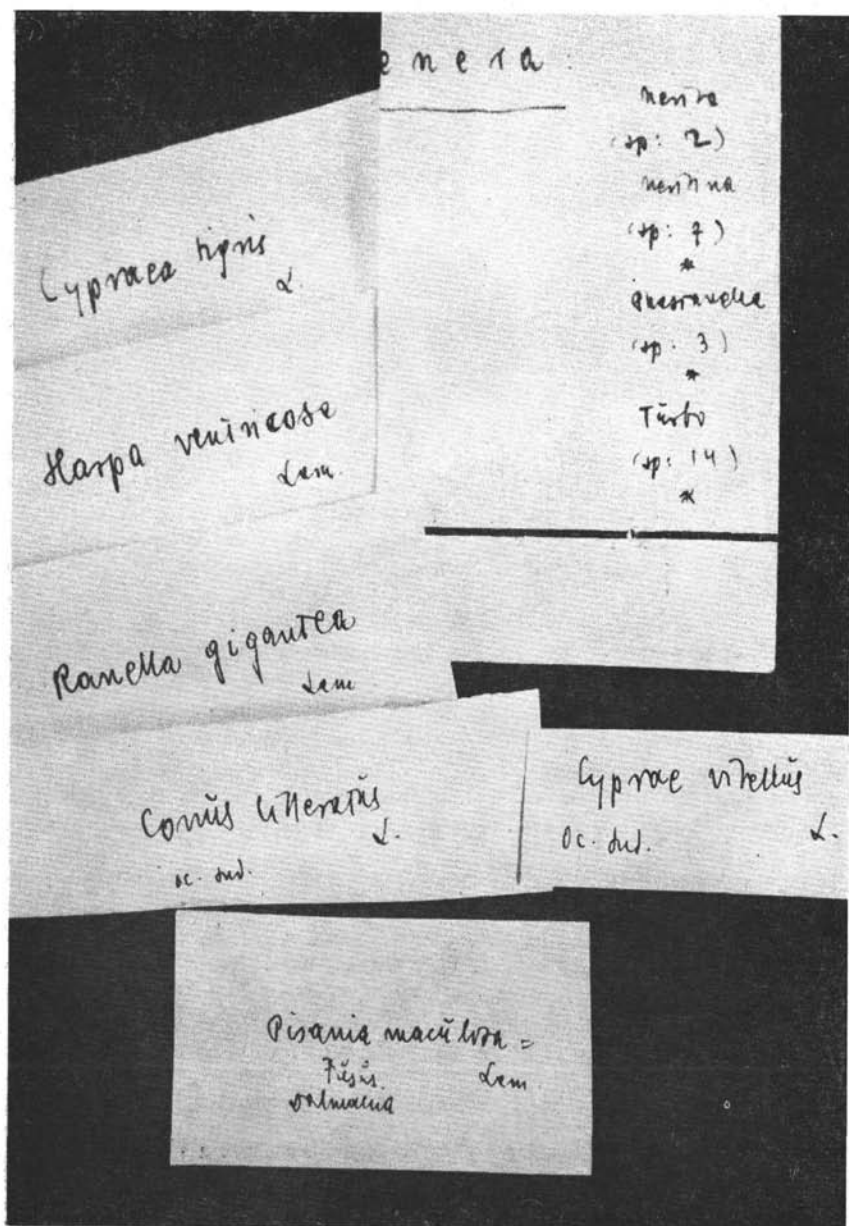 enera:
nerita
(sp: 2)
neritina
(sp: 7)
*
(sp: 3)
*
Tŭrbo
(sp: 14)
*
Cypraea tigris
L.
Harpa ventricosa
Lam.
Ranella gigantea
Lam
Conŭs litteratŭs
L.
oc. Ind.
Cyprae vitellŭs
Oc. Ind. L.
Pisania macŭlosa =
Fŭsŭs. Lam
Dalmatia